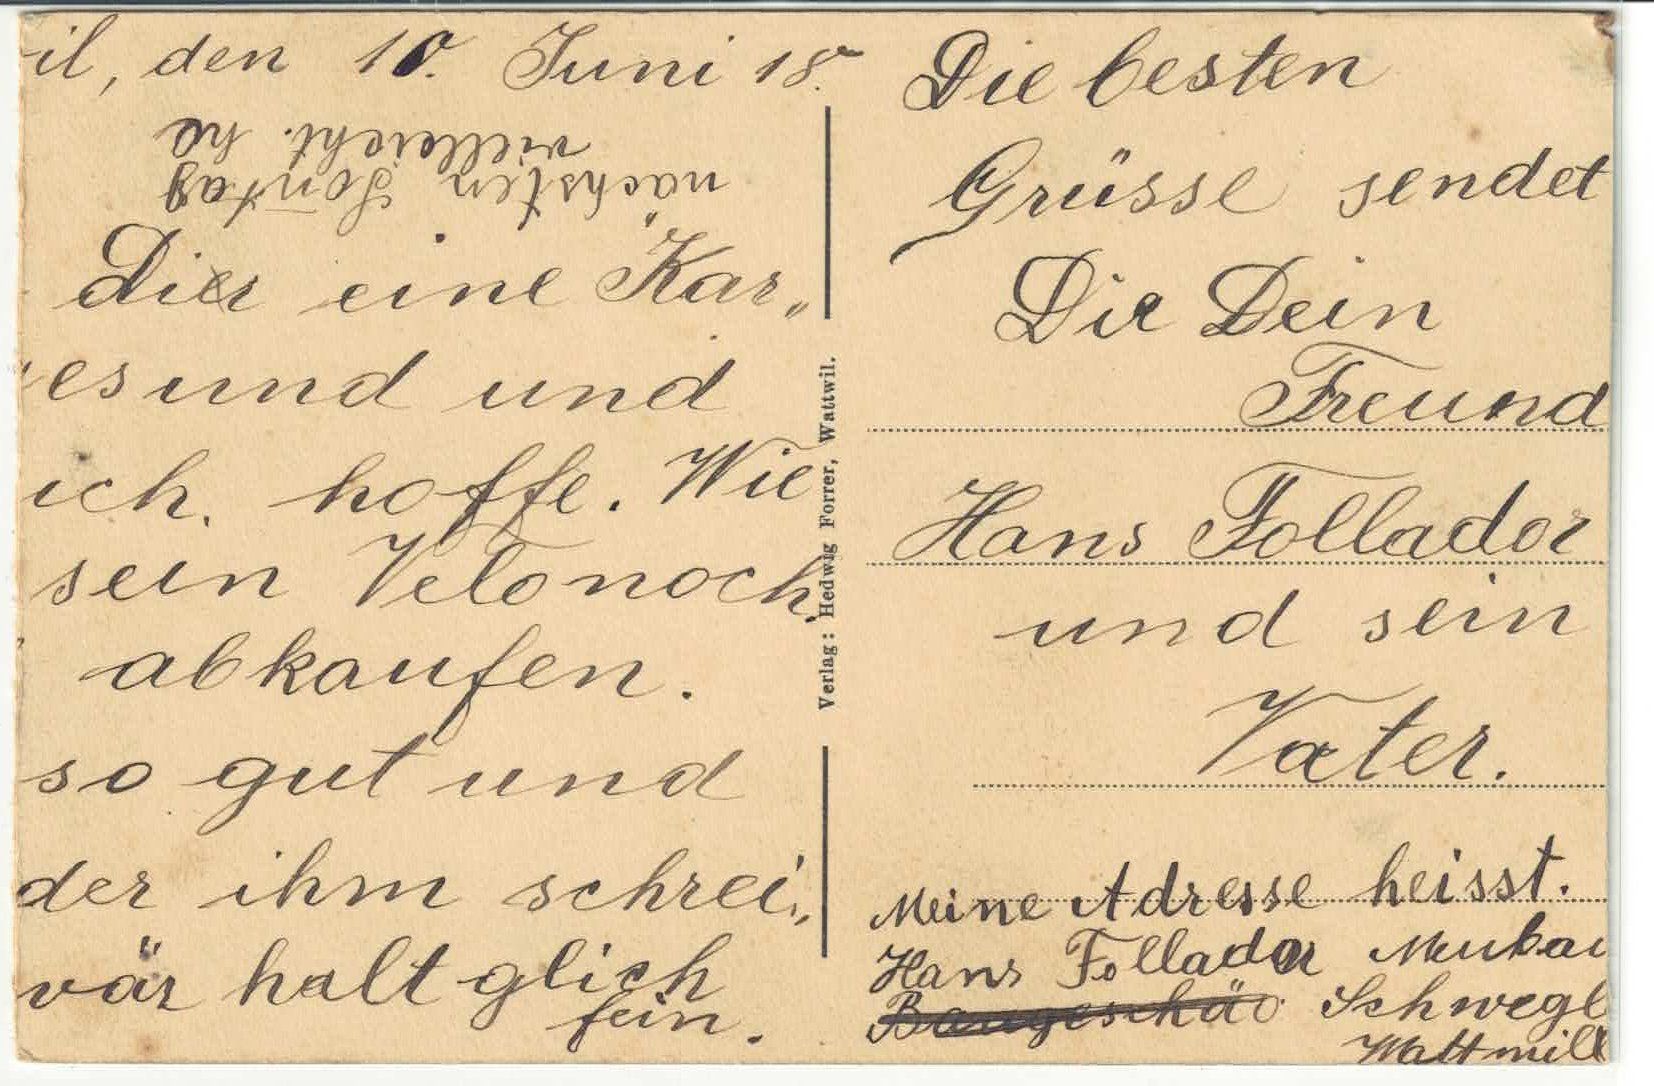 il, den 10. Juni 18.
nächsten Sontag
vielleicht. he
Dir eine Kar„
esund und
ich. hoffe. Wie
sein Velo noch
abkaufen.
so gut und
der ihm schrei„
wär halt glich
fein.
Verlag: Hedwig Forrer, Wattwil.
Die besten
Grüsse sendet
Dir Dein
Freund
Hans Follador
und sein
Vater.
Meine Adresse heisst.
Hans Follador Neubau
Baugeschäf Schwegl
Wattwill